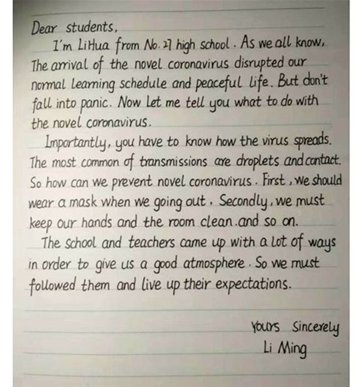 Dear students,
I'm LiHua from No.27 high school. As we all know,
The arrival of the novel coronavirus disrupted our
normal learning schedule and peaceful life. But don't
fall into panic. Now let me tell you what to do with
the novel coronavirus.
Importantly, you have to know how the virus spreads.
The most common of transmissions are droplets and contact.
So how can we prevent novel coronavirus. First, we should
wear a mask when we going out. Secondly, we must
keep our hands and the room clean.and so on.
The school and teachers came up with a lot of ways
in order to give us a good atmosphere. So we must
followed them and live up their expectations.
Yours Sincerely
Li Ming